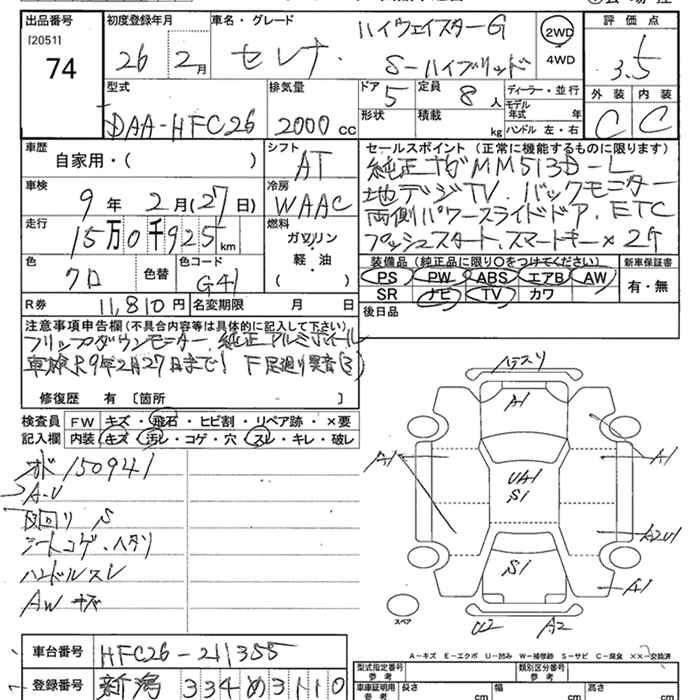 出品番号 初度登録年月 車名・グレード ハイウェイスターG 2WD 評価点
[2051] 74 26年 2月 セレナ S-ハイブリッド 4WD 3.5
型式 DAA-HFC26 排気量 2000cc ドア 5 定員 8人 ディーラー・並行 外装 C 内装 C
形状 積載 kg モデル年式 年 ハンドル 左・右
車歴 自家用・( ) シフト AT セールスポイント(正常に機能するものに限ります)
純正ナビMM513D-L
車検 9年 2月(27日) 冷房 WAAC 地デジTV.バックモニター
両側パワースライドドア.ETC
走行 15万0千925km 燃料 ガソリン・軽油・( ) プッシュスタート.スマートキー×2ケ
色 クロ 色替 色コード G41 装備品(純正品に限り○をつけてください) 新車保証書
PS PW ABS エアB AW 有・無
SR ナビ TV カワ
R券 11,810円 名変期限 月 日 後日品
注意事項申告欄(不具合内容等は具体的に記入して下さい)
フリップダウンモニター.純正アルミホイール
車検R9年2月27日まで! F足廻り異音(3)
修復歴 有〔箇所 〕
検査員記入欄 FW キズ・飛石・ヒビ割・リペア跡・×要
内装 キズ・汚レ・コゲ・穴・スレ・キレ・破レ
メーター150941
A-U
下回り S
シートコゲ.ヘタリ
ハンドルスレ
AWキズ
ハナスリ
A1
A1
A1
UA1
S1
A2U1
S1
A1
スペア
U2 A2
A-キズ E-エクボ U-凹み W-補修跡 S-サビ C-腐食 ××-交換済
車台番号 HFC26-211355 型式指定番号 参考 類別区分番号 参考
登録番号 新潟 334 め 3110 車庫証明用 参考 長さ cm 幅 cm 高さ cm